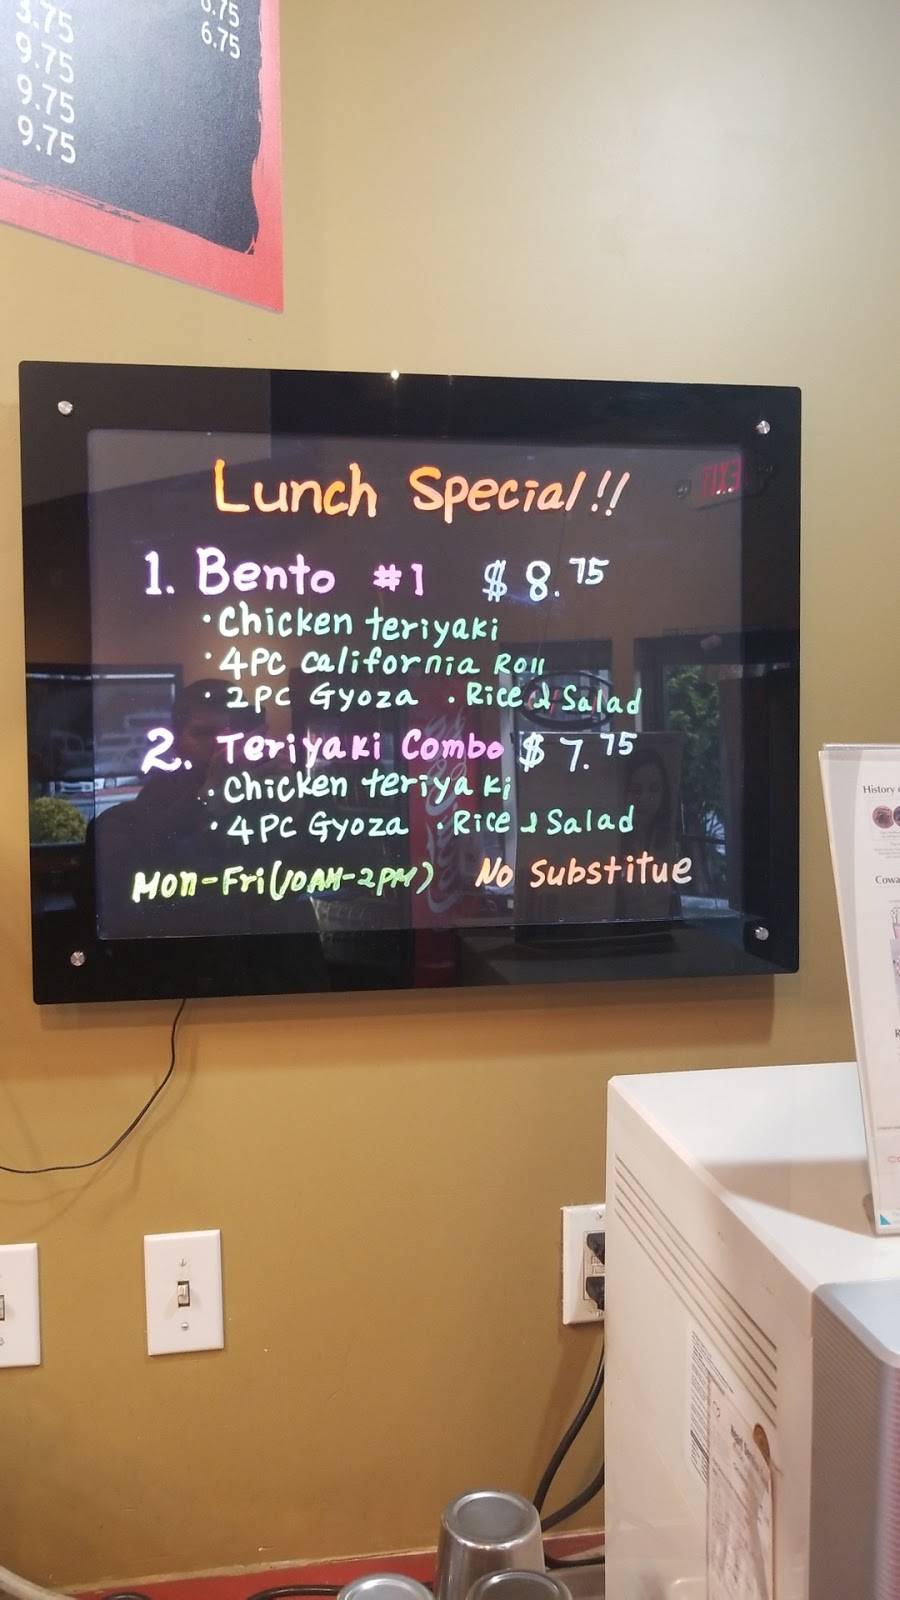 3.75
9.75
9.75
9.75
6.75
Lunch Special!!
1. Bento #1 $8.75
·Chicken teriyaki
·4PC California Roll
·2PC Gyoza ·Rice & Salad
2. Teriyaki Combo $7.75
·Chicken teriyaki
·4PC Gyoza ·Rice & Salad
Mon-Fri(10AM-2PM) No Substitue
EXIT
History
Cowa